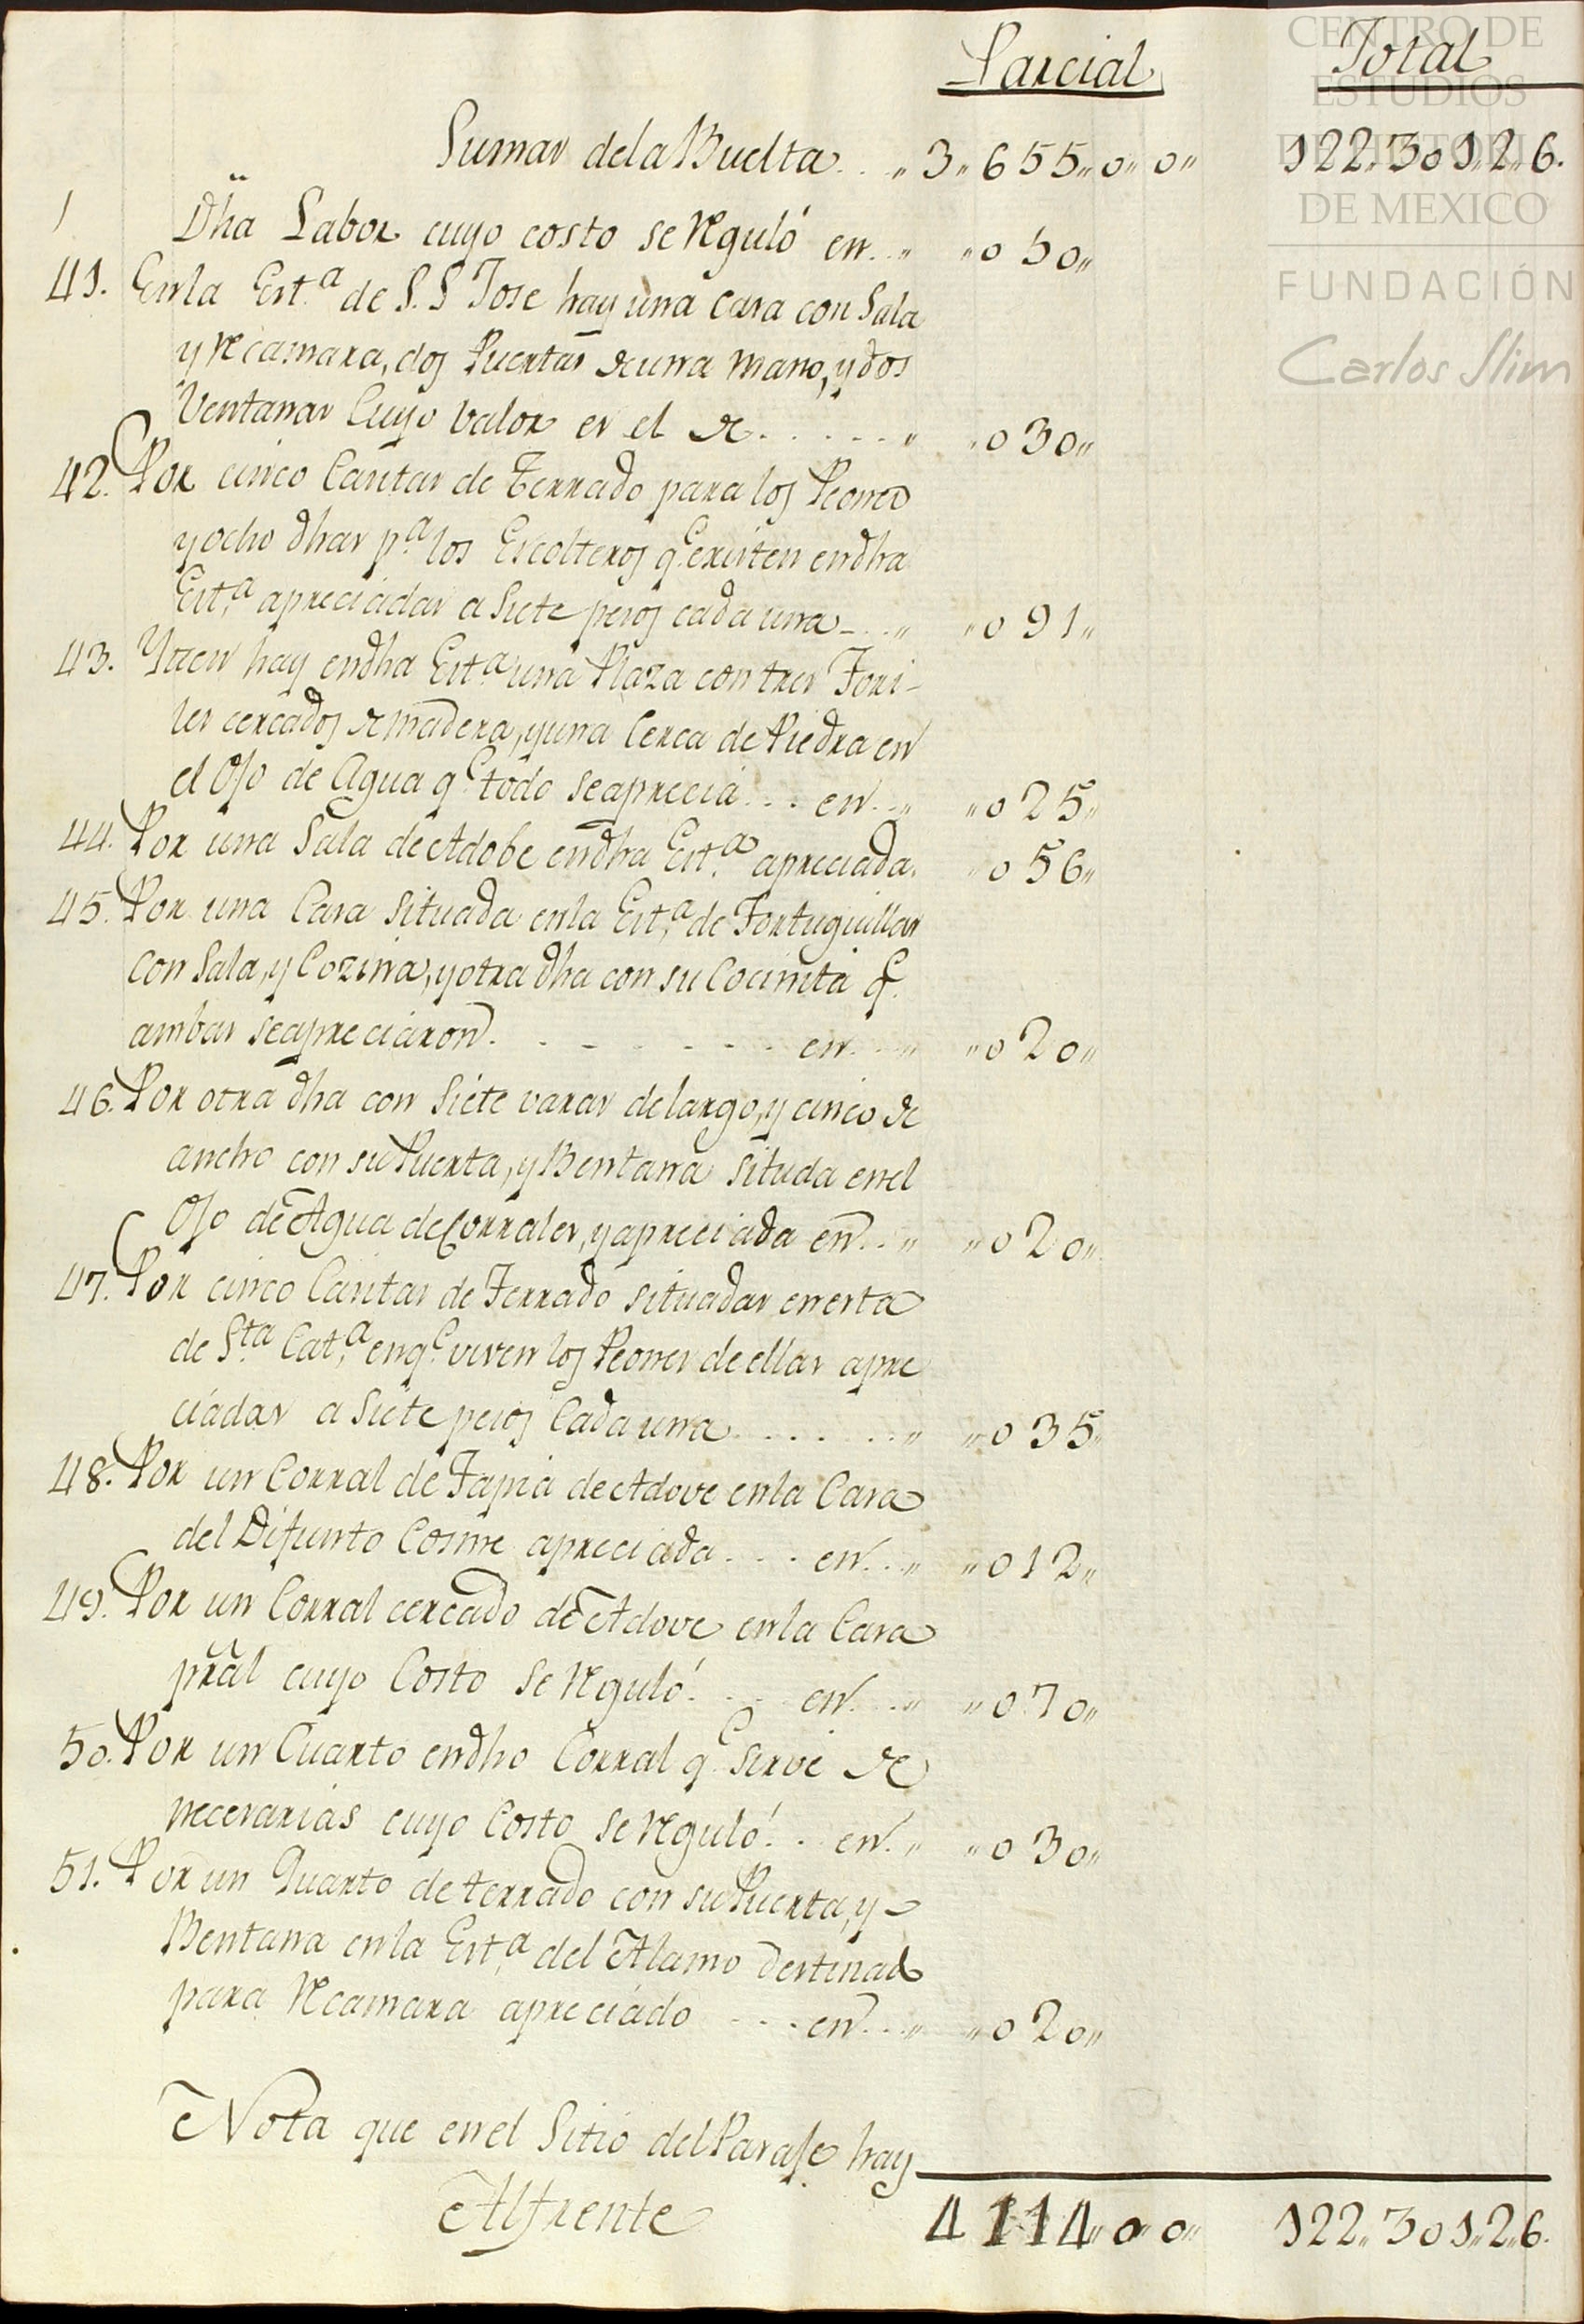 Parcial Total
Sumas dela Buelta.. „3„655„0„0„ 122„301„2„6.
Dha Labor cuyo costo se Reguló en..„ „0 50„
41. En la Est.ª de S.S Jose hay una casa con Sala
y Recamara, dos Puertas de una mano, y dos
Ventanas Cuyo Valor es el de. . . . . . „ „0 30„
42. Por cinco Casitas de Terrado para los Peones
y ocho dhas p.ª los Escolteros q.e existen en dha
Est.ª apreciadas a Siete pesos cada una_..„ „0 91„
43. Yten hay en dha Est.ª una Plaza con tres Tori-
les cercados de madera, y una Cerca de Piedra en
el Ojo de Agua q.e todo se aprecia... en..„ „0 25„
44. Por una Sala de Adobe en dha Est.ª apreciada. „0 56„
45. Por una Casa Situada en la Est.ª de Tortuguillas
con Sala, y Cozina, y otra dha con su Cocinita q.e
ambas se apreciaron. . - - - - - . en...„ „0 20„
46. Por otra dha con Siete varas de largo, y cinco de
ancho con su Puerta, y Bentana Situda en el
Ojo de Agua de Corrales, y apreciada en..„ „0 20„
47. Por cinco Casitas de Terrado situadas en esta
de S.ta Cat.ª en q.e viven los Peones de ellas apre
ciadas a Siete pesos Cada una. . . . . . „ „0 35„
48. Por un Corral de Tapia de Adove en la Casa
del Difunto Cosme apreciada. . . . en..„ „0 12„
49. Por un Corral cercado de Adove en la Casa
pral cuyo Costo se Reguló. . . . en...„ „0 70„
50. Por un Cuarto en dho Corral q.e Serve de
necesarias cuyo Costo se Reguló.. . en.„ „0 30„
51. Por un Quarto de terrado con su Puerta, y
Bentana en la Est.ª del Alamo destinado
para Recamara apreciado - - - . en...„ „0 20„
Nota que en el Sitio del Parage hay
Al frente 4114„0„0„ 122„301„2„6.
CENTRO DE
ESTUDIOS
DE HISTORIA
DE MEXICO
FUNDACIÓN
Carlos Slim